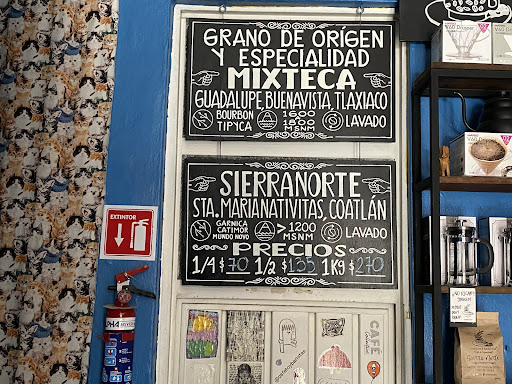 GRANO DE ORÍGEN
Y ESPECIALIDAD
MIXTECA
GUADALUPE, BUENAVISTA, TLAXIACO
BOURBON
TIPYCA
1600
1800
MSNM
LAVADO
SIERRANORTE
STA. MARIANATIVITAS, COATLÁN
GARNICA
CATIMOR
MUNDO NOVO
>1200
MSNM
LAVADO
PRECIOS
1/4 $70 1/2 $135 1KG $270
EXTINTOR
CAFÉ
V60 Dripper